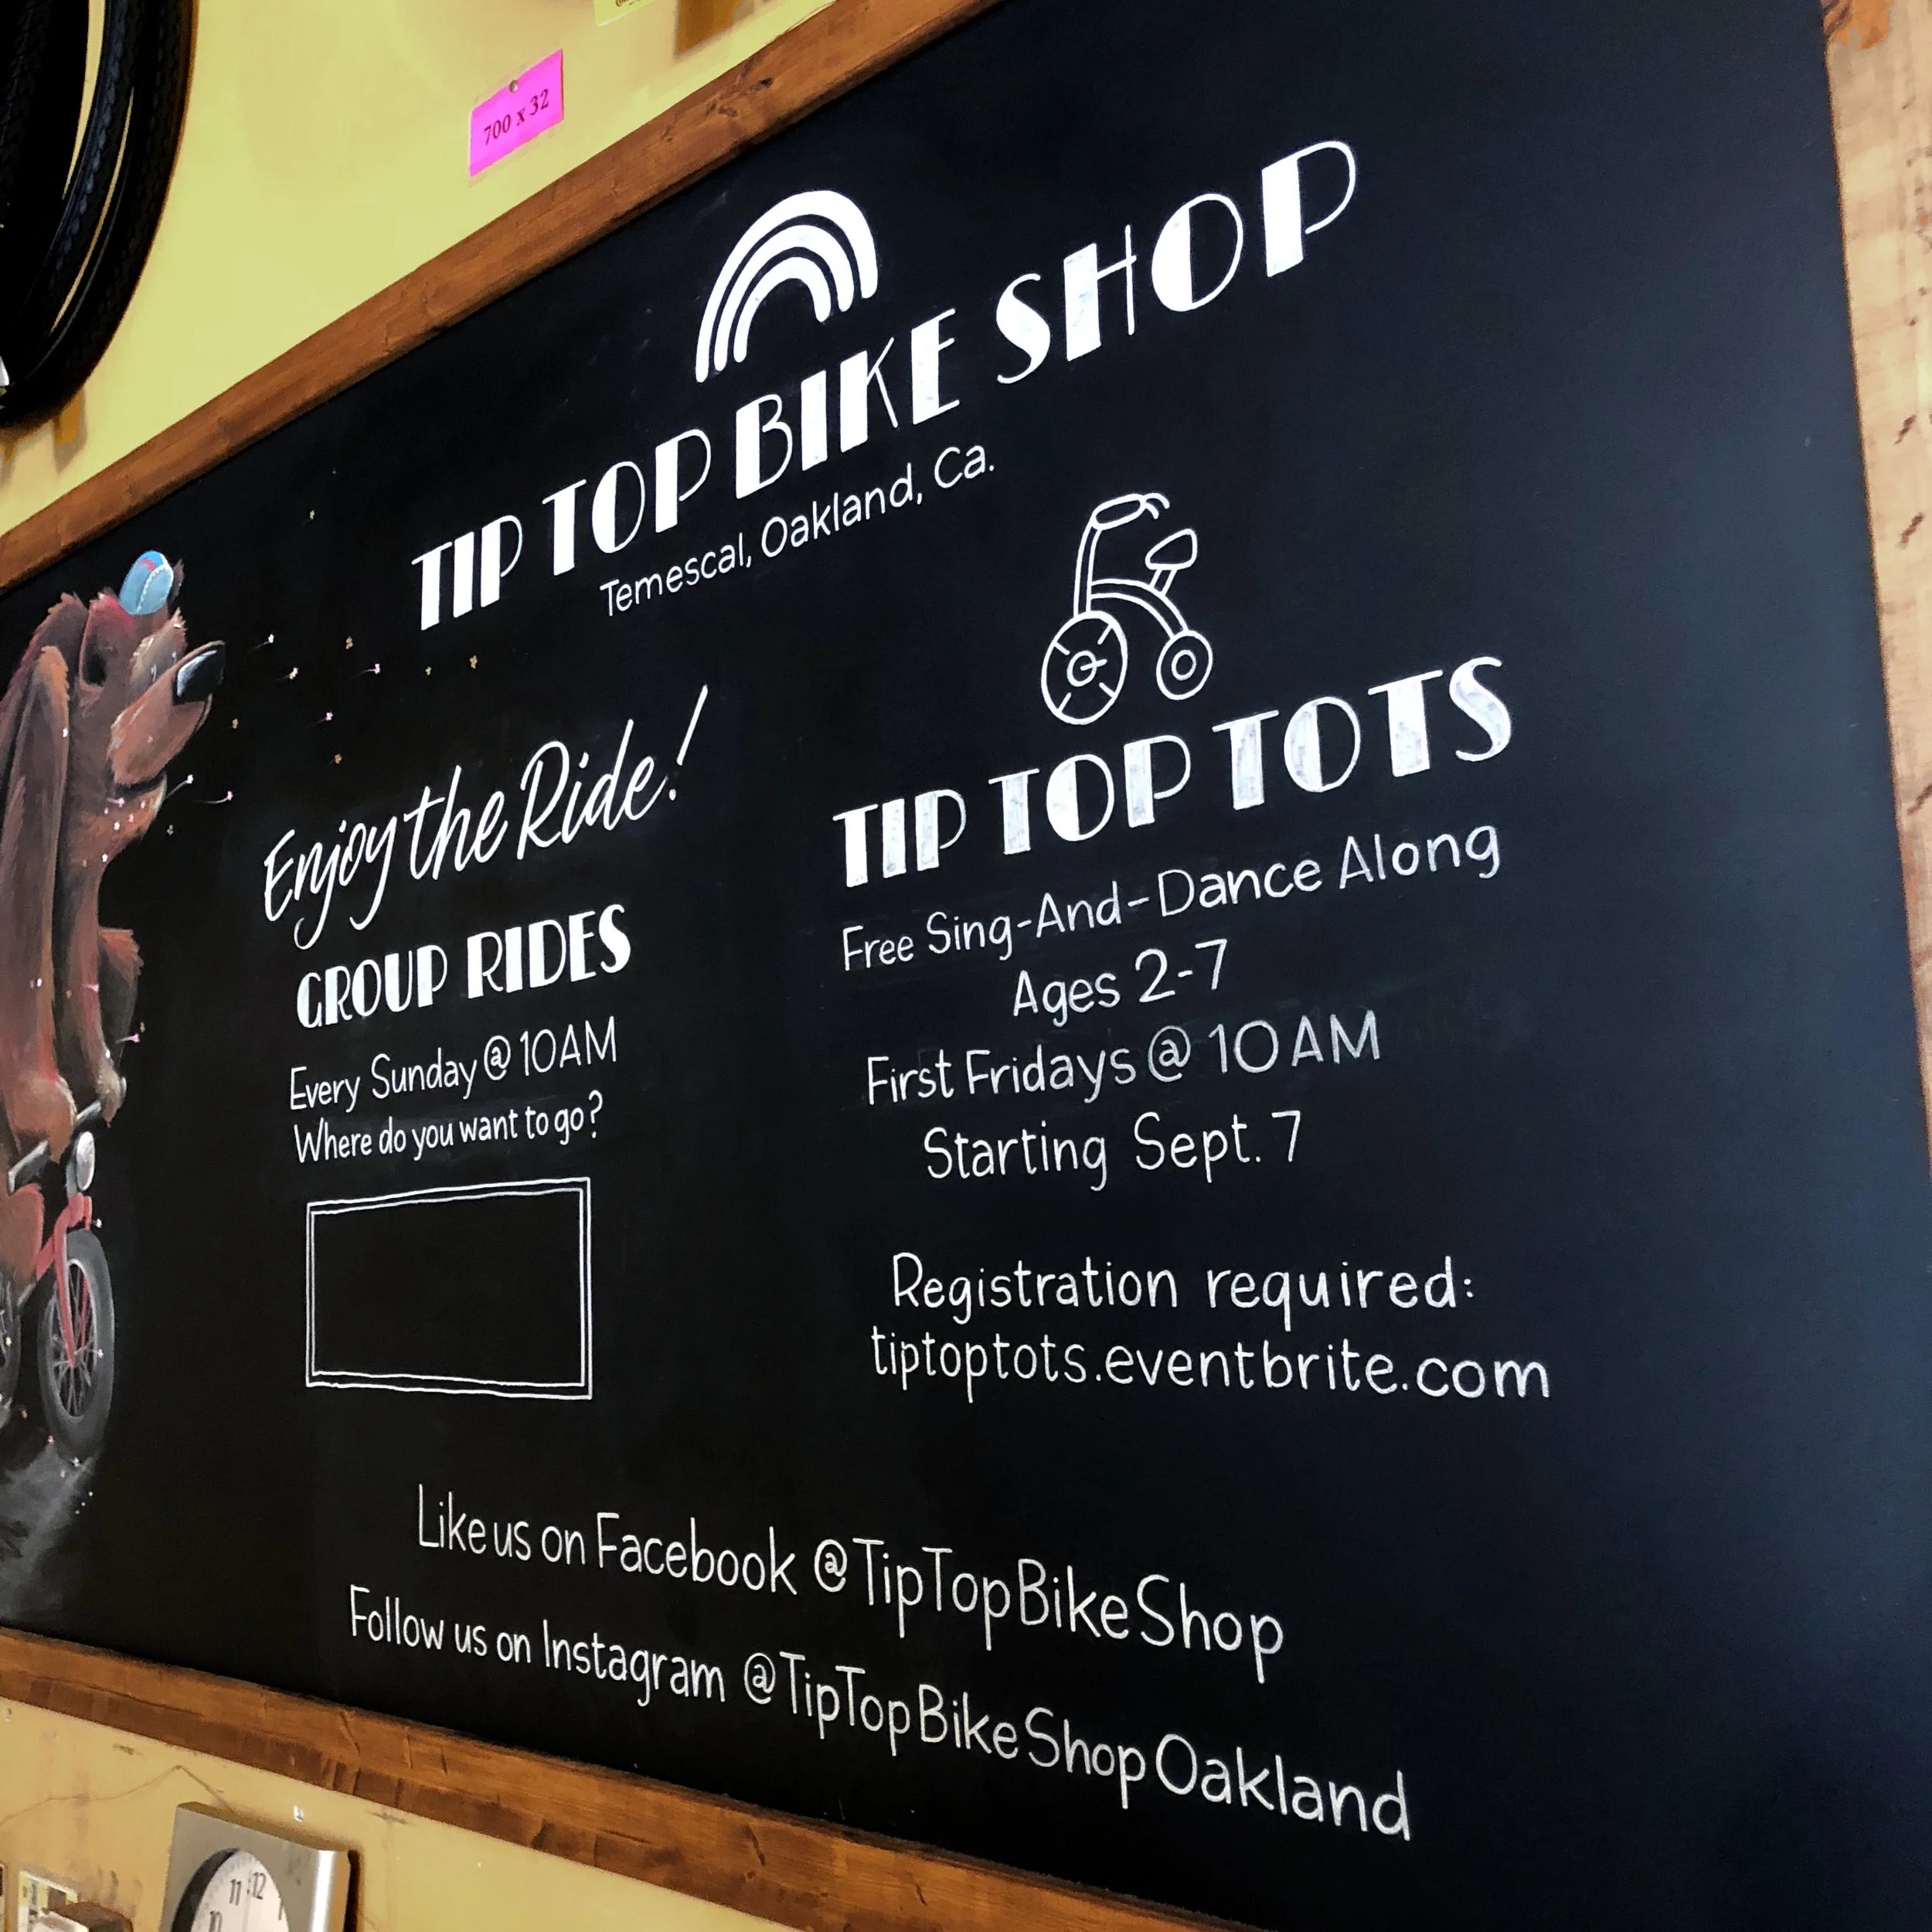 700 x 32
TIP TOP BIKE SHOP
Temescal, Oakland, Ca.
Enjoy the Ride!
GROUP RIDES
Every Sunday @ 10AM
Where do you want to go?
TIP TOP TOTS
Free Sing-And-Dance Along
Ages 2-7
First Fridays @ 10AM
Starting Sept. 7
Registration required:
tiptoptots.eventbrite.com
Like us on Facebook @TipTopBikeShop
Follow us on Instagram @TipTopBikeShopOakland
11 12 1
10